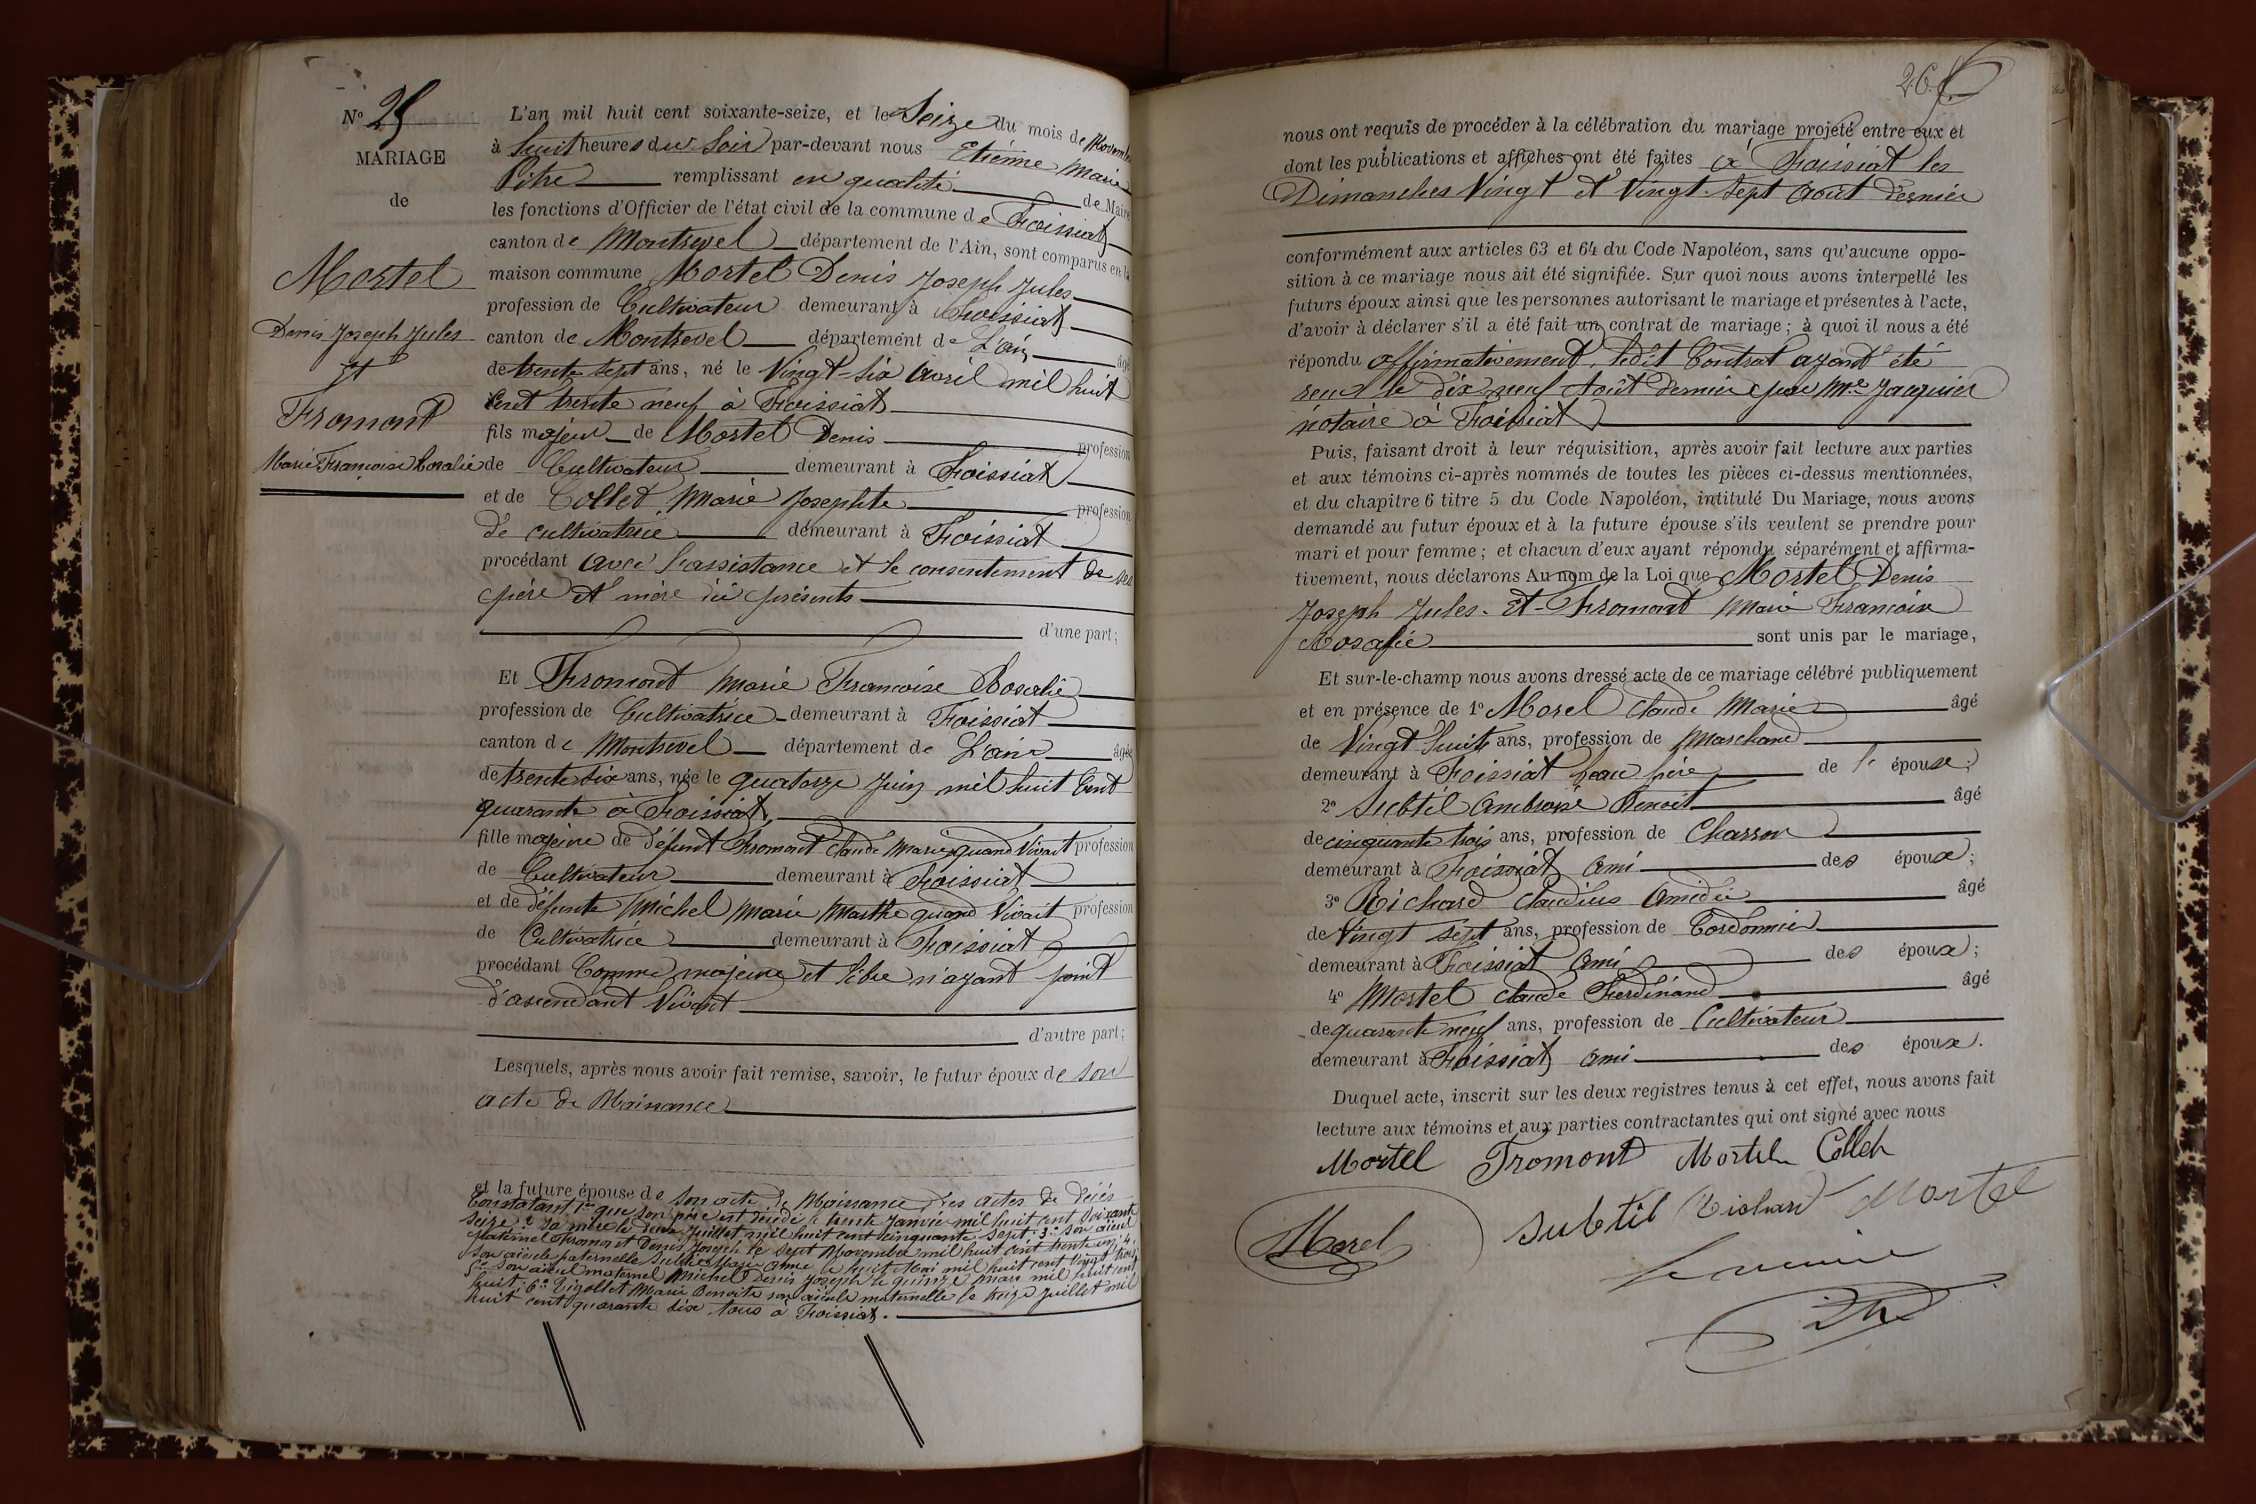 N° 25
MARIAGE
de
Mortel
Denis Joseph Jules
Et
Fromont
Marie Françoise Rosalie
L'an mil huit cent soixante-seize, et le Seize du mois de Novembre
à huit heures du Soir par-devant nous Etienne Marie
Pitre remplissant en qualité de Maire
les fonctions d'Officier de l'état civil de la commune de Foissiat
canton de Montrevel département de l'Ain, sont comparus en la
maison commune Mortel Denis Joseph Jules
profession de Cultivateur demeurant à Foissiat
canton de Montrevel département de L'ain âgé
de trente sept ans, né le Vingt-Six Avril mil huit
Cent trente neuf à Foissiat
fils majeur de Mortel Denis profession
de Cultivateur demeurant à Foissiat
et de Collet Marie Josephte profession
de cultivatrice demeurant à Foissiat
procédant avec l'assistance et le consentement de ses
père et mère ici présents
d'une part;
Et Fromont Marie Francoise Rosalie
profession de Cultivatrice demeurant à Foissiat
canton de Montrevel département de L'ain âgée
de trente Six ans, née le quatorze Juin mil huit Cent
quarante à Foissiat
fille majeure de défunt Fromont Claude Marie quand Vivait profession
de Cultivateur demeurant à Foissiat
et de défunte Michel Marie Marthe quand Vivait profession
de Cultivatrice demeurant à Foissiat
procédant Comme majeure et libre n'ayant point
d'ascendant Vivant
d'autre part;
Lesquels, après nous avoir fait remise, savoir, le futur époux de son
acte de Naissance
et la future épouse de son acte de Naissance, des actes de décés
Constatant 1° que son père est décédé le trente Janvier mil huit cent soixante
seize 2° sa mère le Juillet mil huit cent cinquante sept 3° son aïeul
Fromont Denis Joseph le sept Novembre mil huit cent trente un; 4°
son aïeule paternelle Marie Anne le huit Mai mil huit cent Vingt trois
5° son aïeul maternel Michel Denis Joseph le quinze Mars mil huit cent
huit 6° Marie Benoite son aïeule maternelle le treize Juillet mil
huit cent quarante six tous à Foissiat.
26
nous ont requis de procéder à la célébration du mariage projeté entre eux et
dont les publications et affiches ont été faites à Foissiat les
Dimanches Vingt et Vingt-Sept Août dernier
conformément aux articles 63 et 64 du Code Napoléon, sans qu'aucune oppo-
sition à ce mariage nous ait été signifiée. Sur quoi nous avons interpellé les
futurs époux ainsi que les personnes autorisant le mariage et présentes à l'acte,
d'avoir à déclarer s'il a été fait un contrat de mariage; à quoi il nous a été
répondu affirmativement, ledit Contrat ayant été
recu le dix neuf Août dernier par Me Jacquier
notaire à Foissiat
Puis, faisant droit à leur réquisition, après avoir fait lecture aux parties
et aux témoins ci-après nommés de toutes les pièces ci-dessus mentionnées,
et du chapitre 6 titre 5 du Code Napoléon, intitulé Du Mariage, nous avons
demandé au futur époux et à la future épouse s'ils veulent se prendre pour
mari et pour femme; et chacun d'eux ayant répondu séparément et affirma-
tivement, nous déclarons Au nom de la Loi que Mortel Denis
Joseph Jules. Et Fromont Marie Francoise
Rosalie sont unis par le mariage,
Et sur-le-champ nous avons dressé acte de ce mariage célébré publiquement
et en présence de 1° Morel Claude Marie âgé
de Vingt huit ans, profession de Marchand
demeurant à Foissiat beau frère de l'épouse;
2° Subtil Ambroise Benoit âgé
de cinquante trois ans, profession de Charron
demeurant à Foissiat ami des époux;
3° Richard Claudius Amédée âgé
de Vingt sept ans, profession de Cordonnier
demeurant à Foissiat ami des époux;
4° Mortel Claude Ferdinand âgé
de quarante neuf ans, profession de Cultivateur
demeurant à Foissiat ami des époux.
Duquel acte, inscrit sur les deux registres tenus à cet effet, nous avons fait
lecture aux témoins et aux parties contractantes qui ont signé avec nous
Mortel Fromont Mortel Collet
Morel Subtil Richard Mortel
Le maire